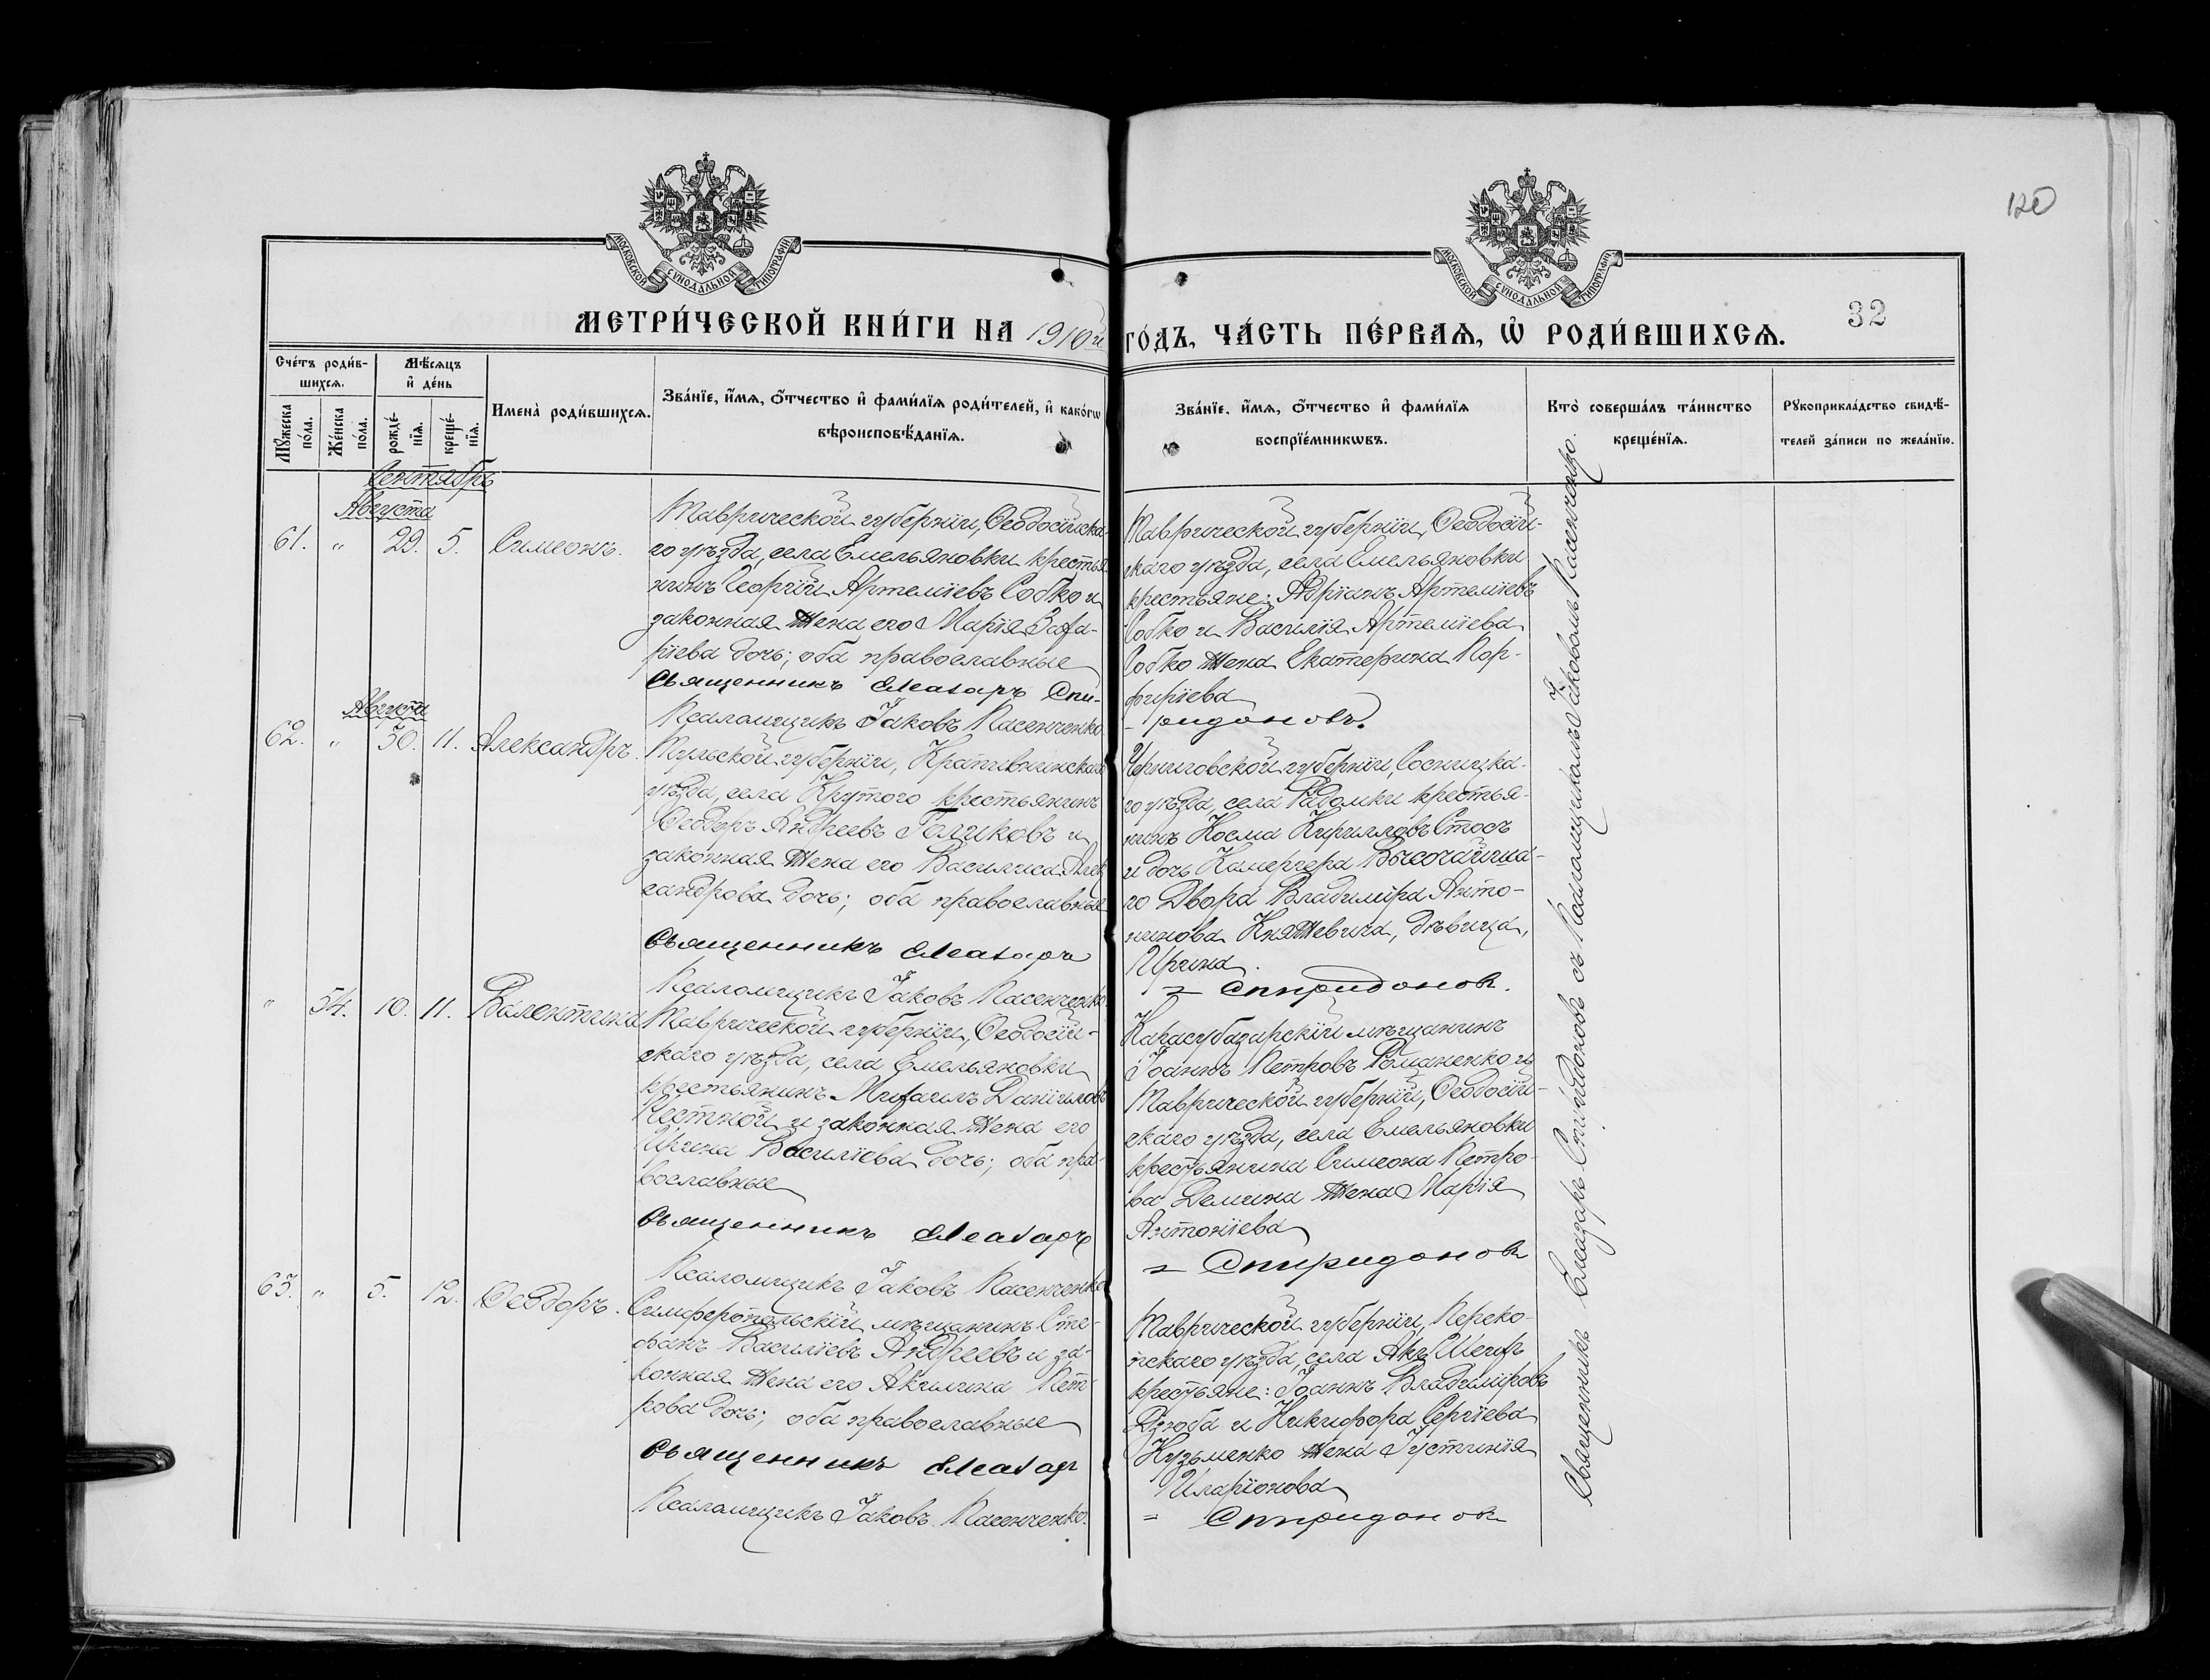 120
32
МОСКОВСКОЙ СѴНОДАЛЬНОЙ ТИПОГРАФІИ
МОСКОВСКОЙ СѴНОДАЛЬНОЙ ТИПОГРАФІИ
МЕТРИ́ЧЕСКОЙ КНИ́ГИ НА 1910й ГО́ДЪ, ЧА́СТЬ ПЕ́РВАѦ, Ѡ РОДИ́ВШИХСѦ.
Сче́тъ роди́в-
шихсѧ.
Мѣ́сѧцъ
и де́нь
Мꙋжеска по́ла.
Же́нска по́ла.
рожде́-
нїѧ.
креще́-
нїѧ.
Имена̀ роди́вшихсѧ.
Зва́нїе, и́мѧ, о́тчество и фами́лїѧ роди́телей, и како́гѡ
вѣроисповѣ́данїѧ.
Зва́нїе, и́мѧ, о́тчество и фами́лїѧ
воспрїе́мникѡвъ.
Кто̀ соверша́лъ та́инство
креще́нїѧ.
Рꙋкоприкла́дство свидѣ́-
телей за́писи по жела́нїю.
Сентябрь
Августа
61. " 29. 5. Симеонъ.
Таврической губерніи, Ѳеодосійска-
го уѣзда, села Емельяновки крестья-
нинъ Георгій Артеміевъ Собко и
законная жена его Марія Заха-
ріева дочь; оба православные
Священникъ Елеазаръ Спи-
Псаломщикъ Іаковъ Пасенченко
Таврической губерніи, Ѳеодосій-
скаго уѣзда, села Емельяновки
крестьяне: Адріанъ Артеміевъ
Собко и Василія Артеміева
Собко жена Екатерина Пор-
фиріева
- ридоновъ.
Августа
62. " 30. 11. Александръ.
Тульской губерніи, Крапивинскаго
уѣзда, села Крутого крестьянинъ
Ѳеодоръ Андреевъ Голиковъ и
законная жена его Василиса Алек-
сандрова дочь; оба православные
Священникъ Елеазаръ
Псаломщикъ Іаковъ Пасенченко
Черниговской губерніи, Сосницка-
го уѣзда, села Радомки крестья-
нинъ Косма Кирилловъ Стось
и дочь Камергера Высочайша-
го Двора Владиміра Анто-
нинова Княжевича, дѣвица,
Ирина.
= Спиридоновъ.
" 54. 10. 11. Валентина
Таврической губерніи, Ѳеодосій-
скаго уѣзда, села Емельяновки
крестьянинъ Михаилъ Даніиловъ
Честной и законная жена его
Ирина Василіева дочь; оба пра-
вославные
Священникъ Елеазаръ
Псаломщикъ Іаковъ Пасенченко
Карасубазарскій мѣщанинъ
Іоаннъ Петровъ Романенко и
Таврической губерніи, Ѳеодосій-
скаго уѣзда, села Емельяновки
крестьянина Симеона Петро-
ва Демина жена Марія
Антоніева
= Спиридоновъ
63. " 5. 12. Ѳеодоръ.
Симферопольскій мѣщанинъ Сте-
фанъ Василіевъ Андреевъ и за-
конная жена его Акилина Пет-
рова дочь; оба православные
Священникъ Елеазаръ
Псаломщикъ Іаковъ Пасенченко.
Таврической губерніи, Переко-
пскаго уѣзда, села Акъ Шеихъ
крестьяне: Іоаннъ Владиміровъ
Дзюба и Никифора Сергіева
Кузьменко жена Іустинія
Иларіонова
= Спиридоновъ
Священникъ Елеазаръ Спиридоновъ съ Псаломщикомъ Іаковомъ Пасенченко.